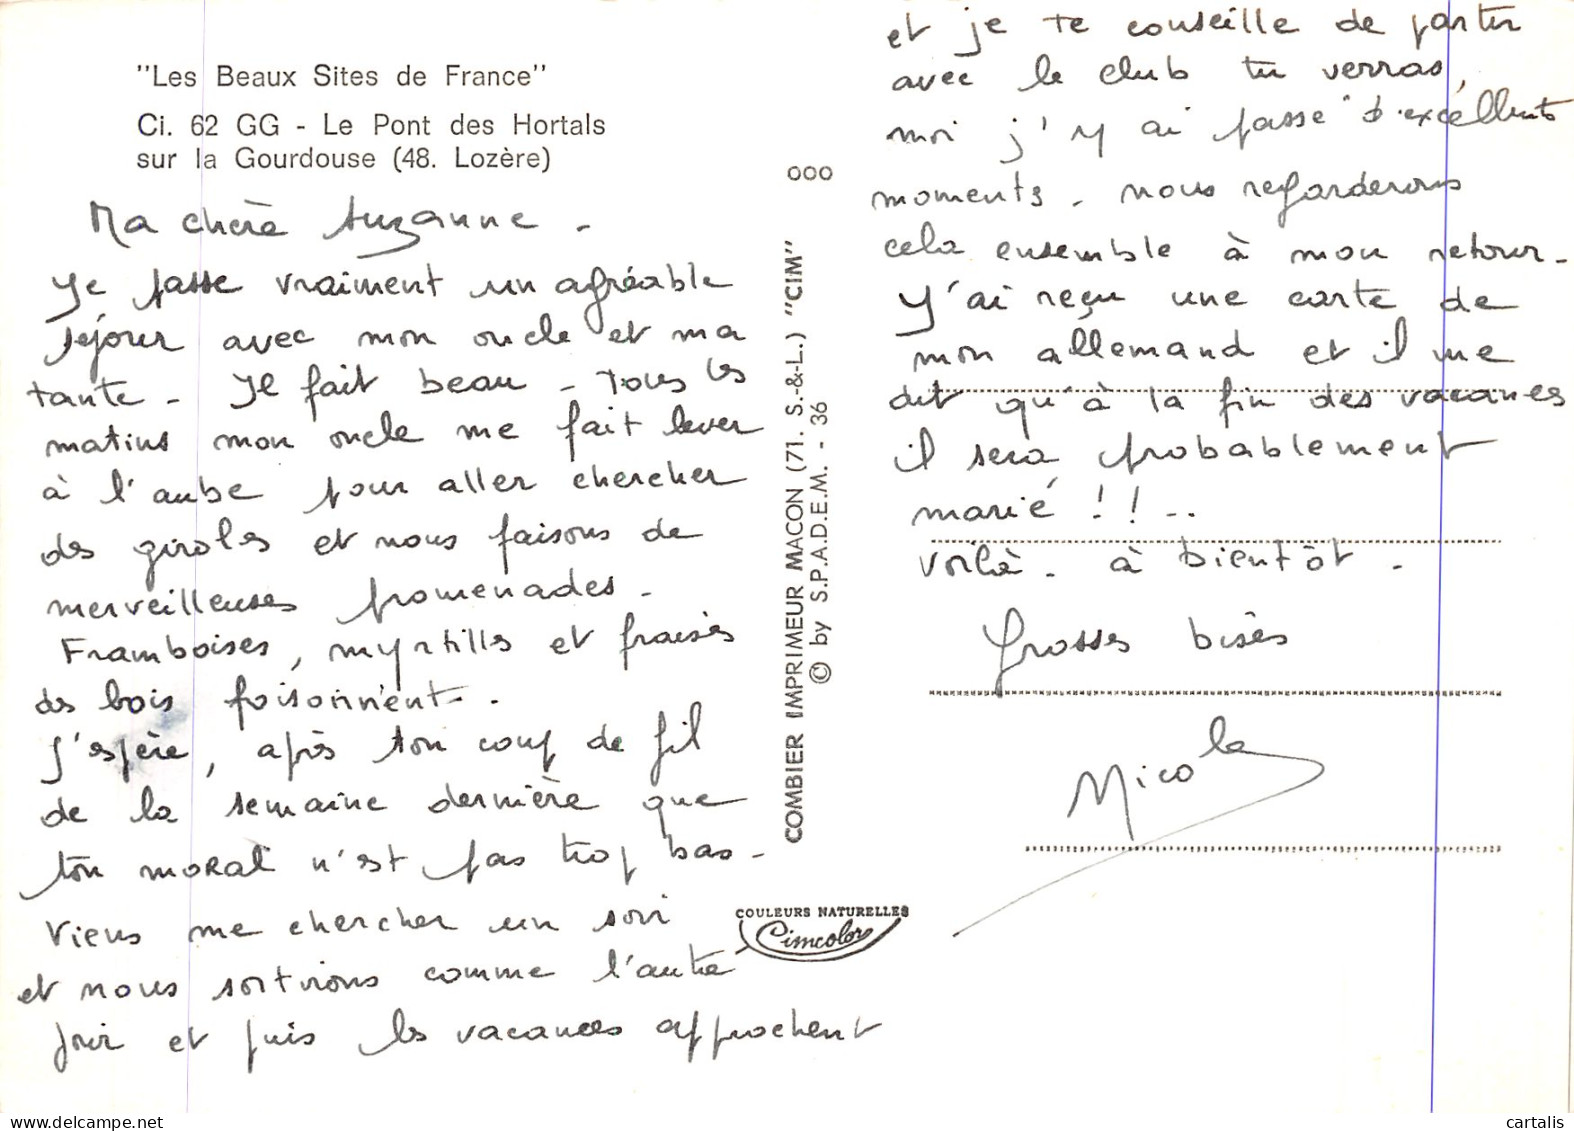 "Les Beaux Sites de France"
Ci. 62 GG - Le Pont des Hortals
sur la Gourdouse (48. Lozère)
Ma chère Suzanne -
Je passe vraiment un agréable
séjour avec mon oncle et ma
tante - Il fait beau - Tous les
matins mon oncle me fait lever
à l'aube pour aller chercher
des giroles et nous faisons de
merveilleuses promenades -
Framboises, myrtilles et fraises
des bois foisonnent -
J'espère, après ton coup de fil
de la semaine dernière que
ton moral n'est pas trop bas -
Viens me chercher un soir
et nous sortirons comme l'autre
soir et puis les vacances approchent
et je te conseille de partir
avec le club tu verras,
moi j'y ai passé d'excellents
moments - nous regarderons
cela ensemble à mon retour -
J'ai reçu une carte de
mon allemand et il me
dit qu'à la fin des vacances
il sera probablement
marié !! ...
voilà - à bientôt -
Grosses bises
Nicole
COMBIER IMPRIMEUR MACON (71. S.-&-L.) "CIM"
© by S.P.A.D.E.M. - 36
ooo
COULEURS NATURELLES
Cimcolor
cartalis.com